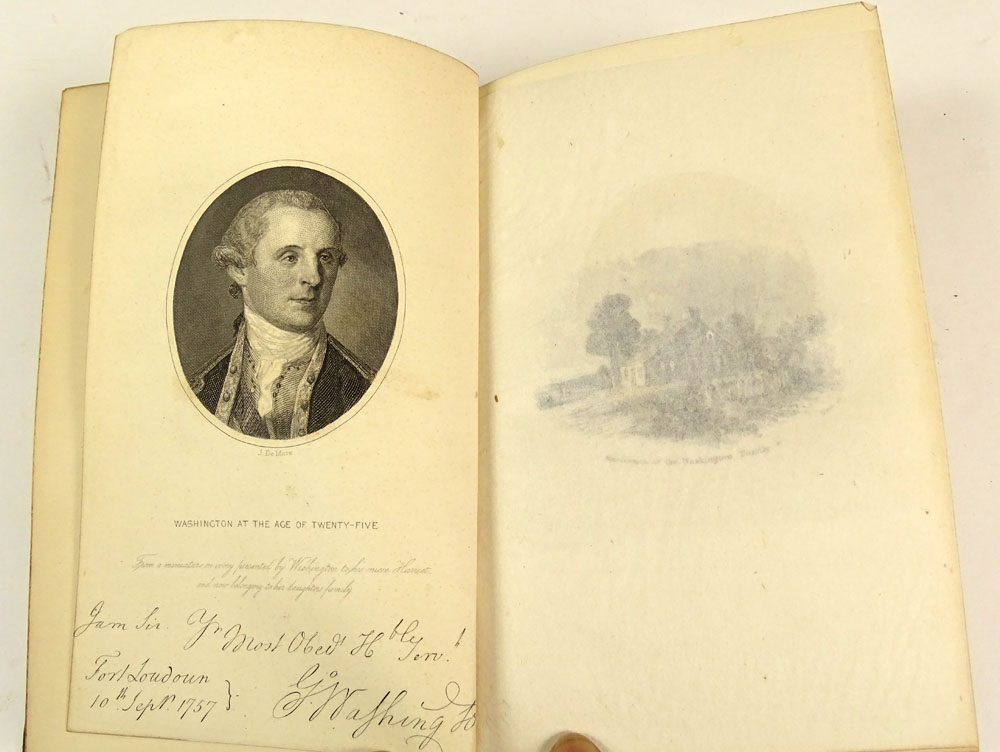 J. De Mare
WASHINGTON AT THE AGE OF TWENTY-FIVE
From a miniature on ivory presented by Washington to his niece Harriet
and now belonging to her daughter's family.
I am Sir. Yr Most Obedt Hble Servt
Fort Loudoun
10th Sepr 1757
Go Washing
of the Washington Family